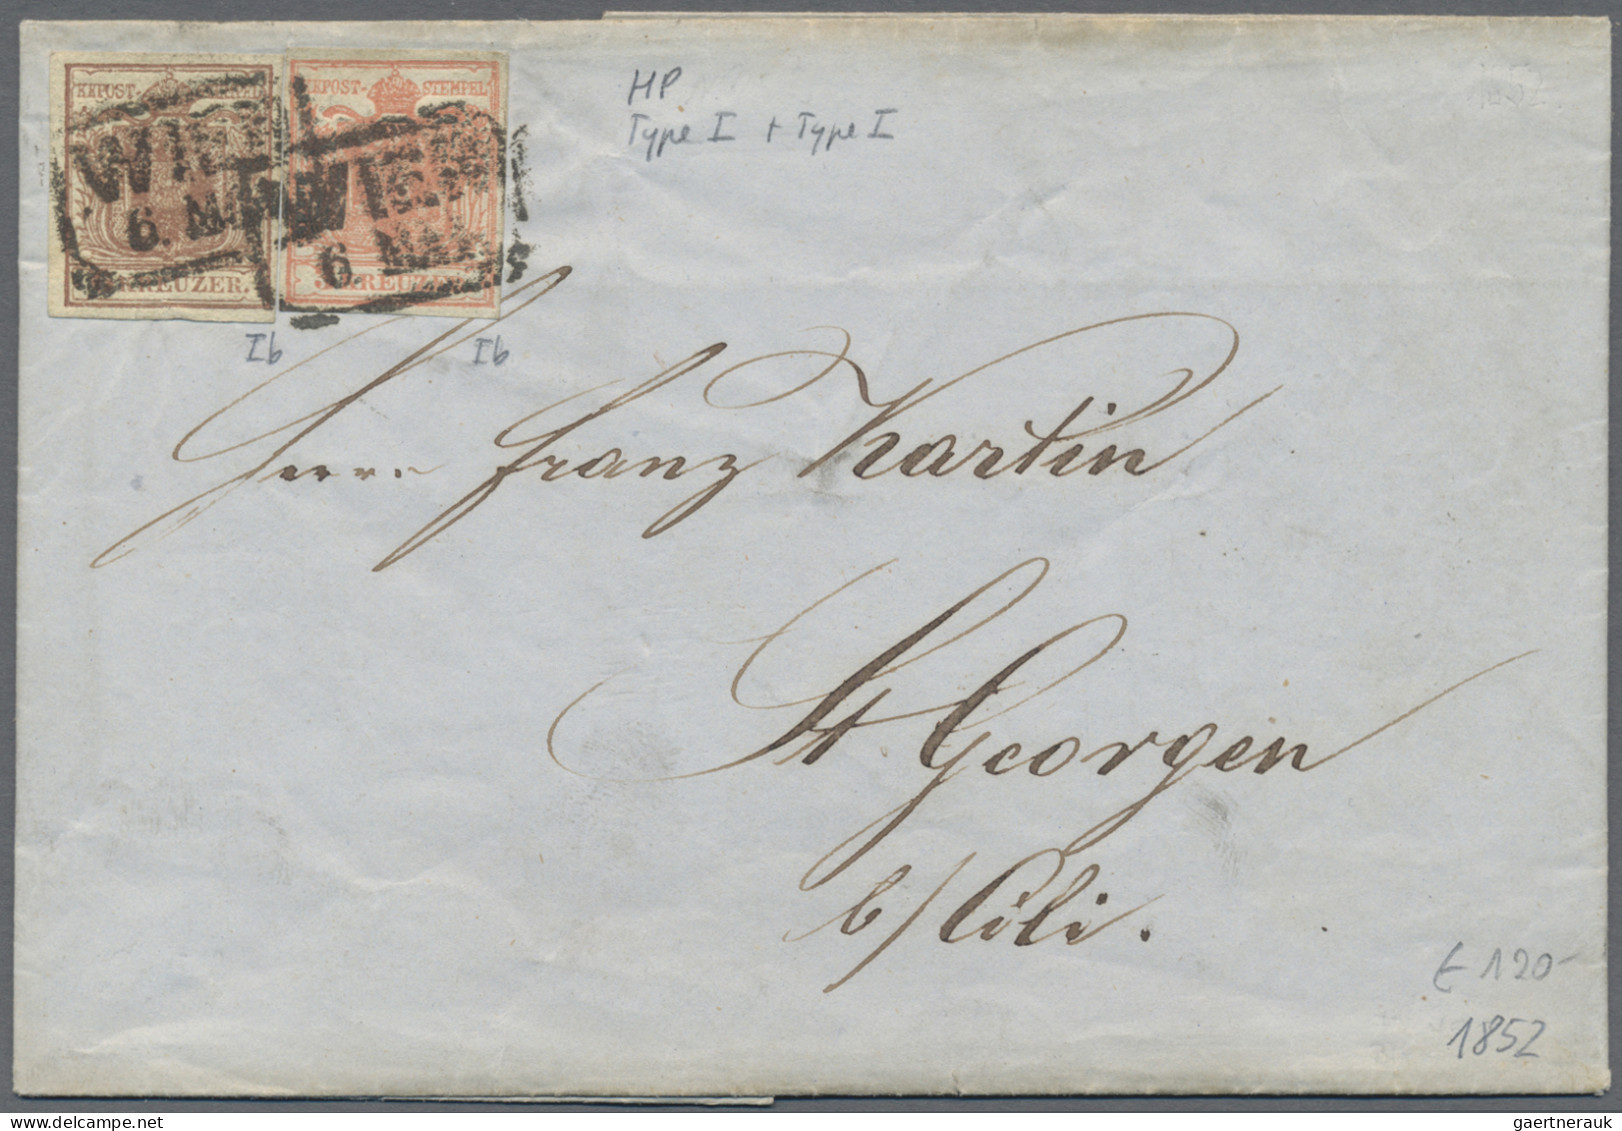 KKPOST-
KKPOST-STEMPEL
WIEN
6. MAI
WIEN
6. MAI
KREUZER.
3 KREUZER
HP
Type I + Type I
Ib
Ib
Herrn Franz Kartin
St Georgen
b/ Cili.
€ 120-
1852
gaertnerauk@delcampe.net